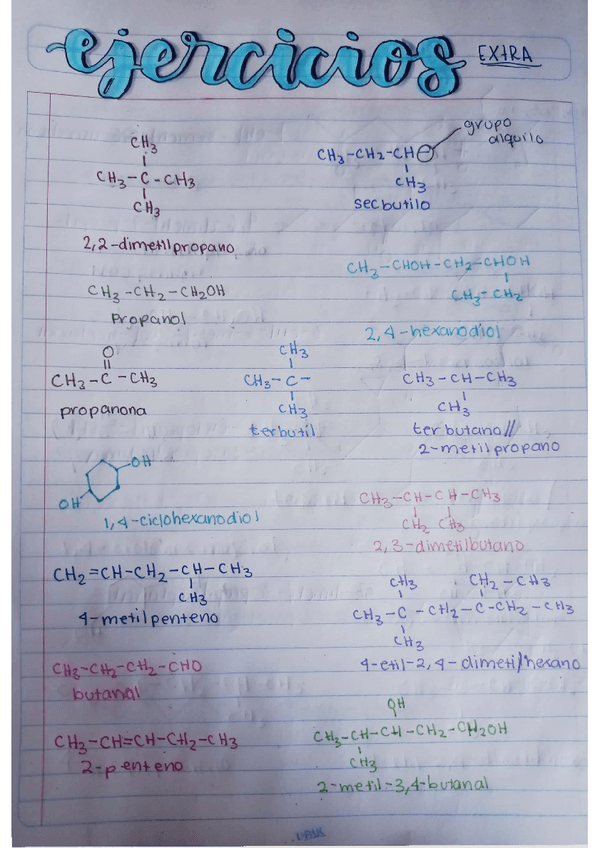 ejercicios EXTRA
CH3
CH3-C-CH3
CH3
2,2-dimetilpropano
grupo
alquilo
CH3-CH2-CH
CH3
secbutilo
CH3-CH2-CH2OH
Propanol
CH3-CHOH-CH2-CHOH
CH3-CH2
2,4-hexanodiol
O
CH3-C-CH3
propanona
CH3
CH3-C-
CH3
terbutil
CH3-CH-CH3
CH3
terbutano//
2-metilpropano
OH
OH
1,4-ciclohexanodiol
CH3-CH-CH-CH3
CH2 CH3
2,3-dimetilbutano
CH2=CH-CH2-CH-CH3
CH3
4-metilpenteno
CH3 CH2-CH3
CH3-C-CH2-C-CH2-CH3
CH3
4-etil-2,4-dimetilhexano
CH3-CH2-CH2-CHO
butanal
CH3-CH=CH-CH2-CH3
2-penteno
OH
CH3-CH-CH-CH2-CH2OH
CH3
2-metil-3,4-butanal